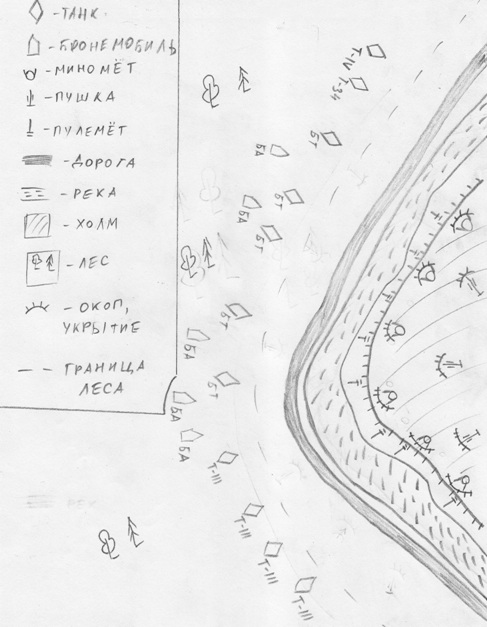 - ТАНК
- БРОНЕМОБИЛЬ
- МИНОМЁТ
- ПУШКА
- ПУЛЕМЁТ
- ДОРОГА
- РЕКА
- ХОЛМ
- ЛЕС
- ОКОП,
УКРЫТИЕ
- ГРАНИЦА
ЛЕСА
Т-IV
Т-34
БТ
БА
БТ
БА
БТ
БТ
БА
БТ
БА
БА
Т-III
Т-III
Т-III
Т-III